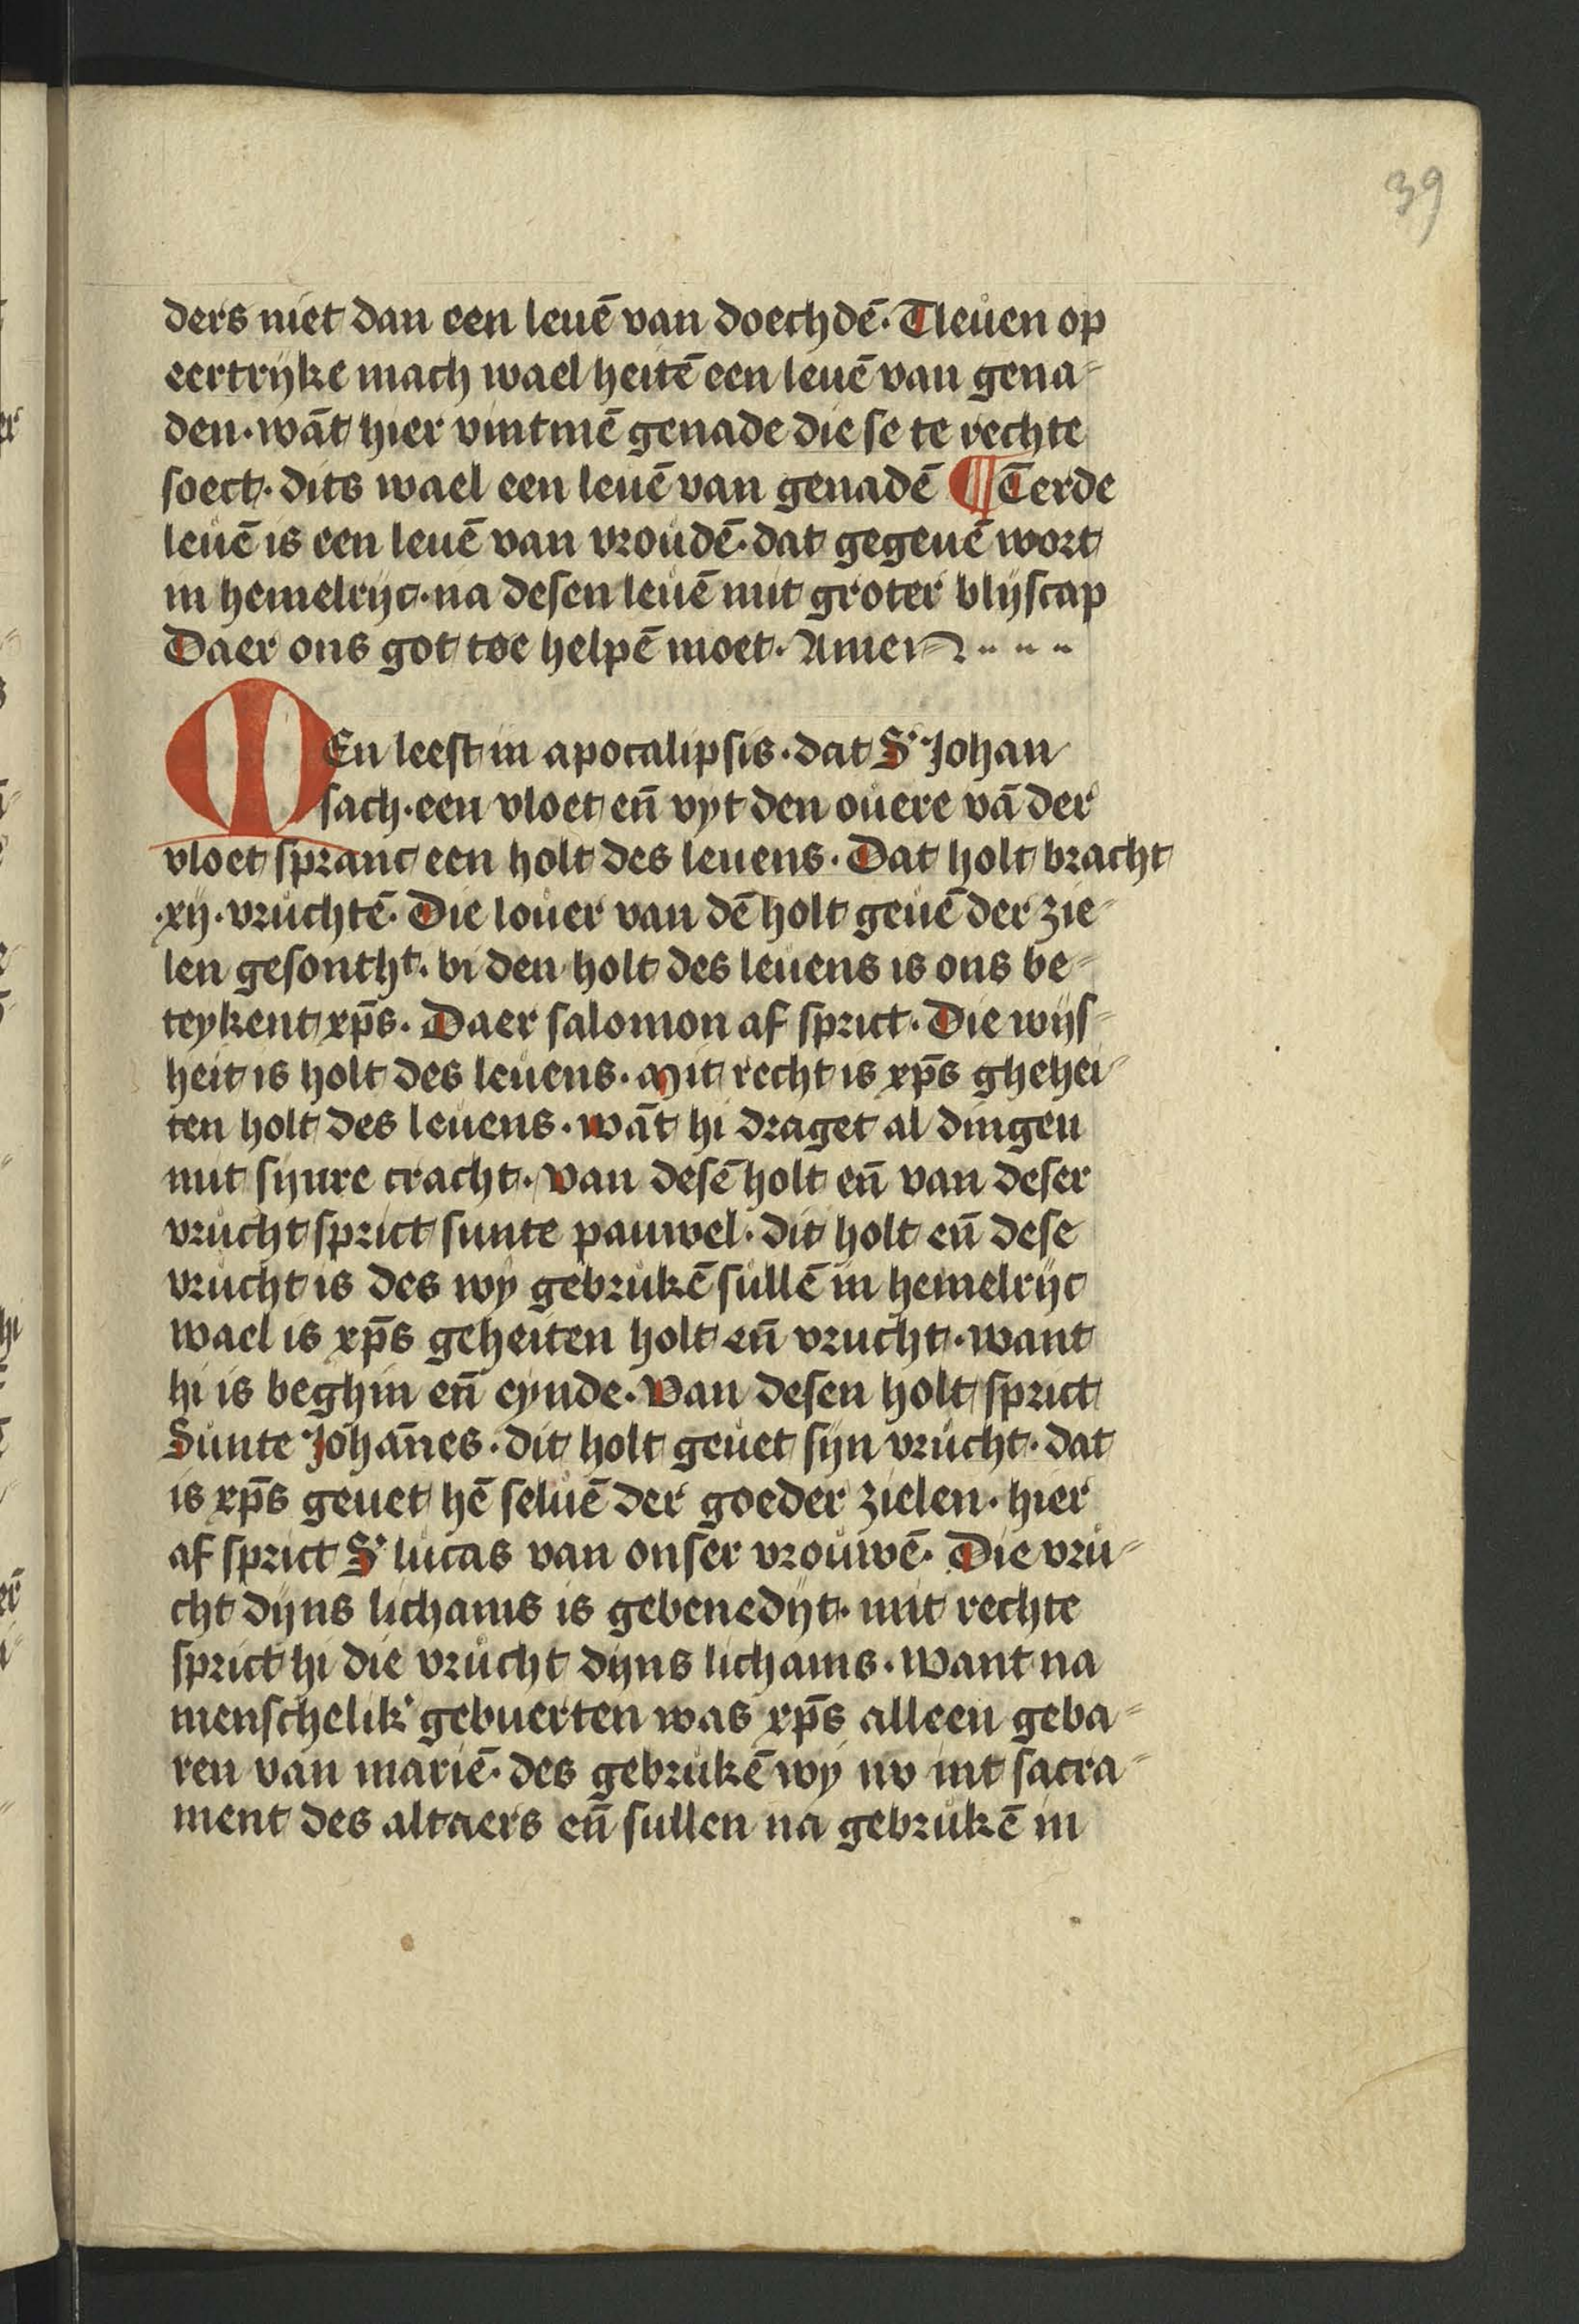 39
ders niet dan een leuē van doechdē. Tleuen op
eertrijke mach wael heitē een leuē van gena-
den. wāt hier vintmē genade die se te rechte
soect. dits wael een leuē van genadē ¶ Terde
leuē is een leuē van vroudē. dat gegeuē wort
in hemelrijc. na desen leuē mit groter blijscap
Daer ons got toe helpē moet. Amen
MEn leest in apocalipsis. dat S' Johan
sach. een vloet en̄ vyt den ouere vā der
vloet spranc een holt des leuens. Dat holt bracht
.xij. vruchtē. Die louer van dē holt geuē der zie-
len gesontht. bi den holt des leuens is ons be-
teykent xp̄s. Daer salomon af sprict. Die wijs-
heit is holt des leuens. Mit recht is xp̄s ghehei-
ten holt des leuens. wāt hi draget al dingen
mit sijnre cracht. Van desē holt en̄ van deser
vrucht sprict sunte pauwel. dit holt en̄ dese
vrucht is des wy gebrukē sullē in hemelrijc
wael is xp̄s geheiten holt en̄ vrucht. want
hi is beghin en̄ eynde. Van desen holt sprict
Sunte Johān̄es. dit holt geuet sijn vrucht. dat
is xp̄s geuet hē seluē der goeder zielen. hier
af sprict S' lucas van onser vrouwē. Die vru-
cht dijns lichams is gebenedijt. mit rechte
sprict hi die vrucht dijns lichams. want na
menschelik' gebuerten was xp̄s alleen geba-
ren van mariē. des gebrukē wy nv int sacra-
ment des altaers en̄ sullen na gebrukē in